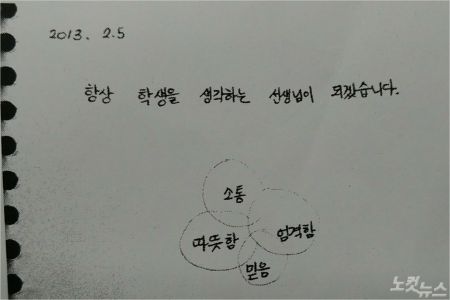 2013. 2.5
항상 학생을 생각하는 선생님이 되겠습니다.
소통
따뜻함 엄격함
믿음
노컷뉴스